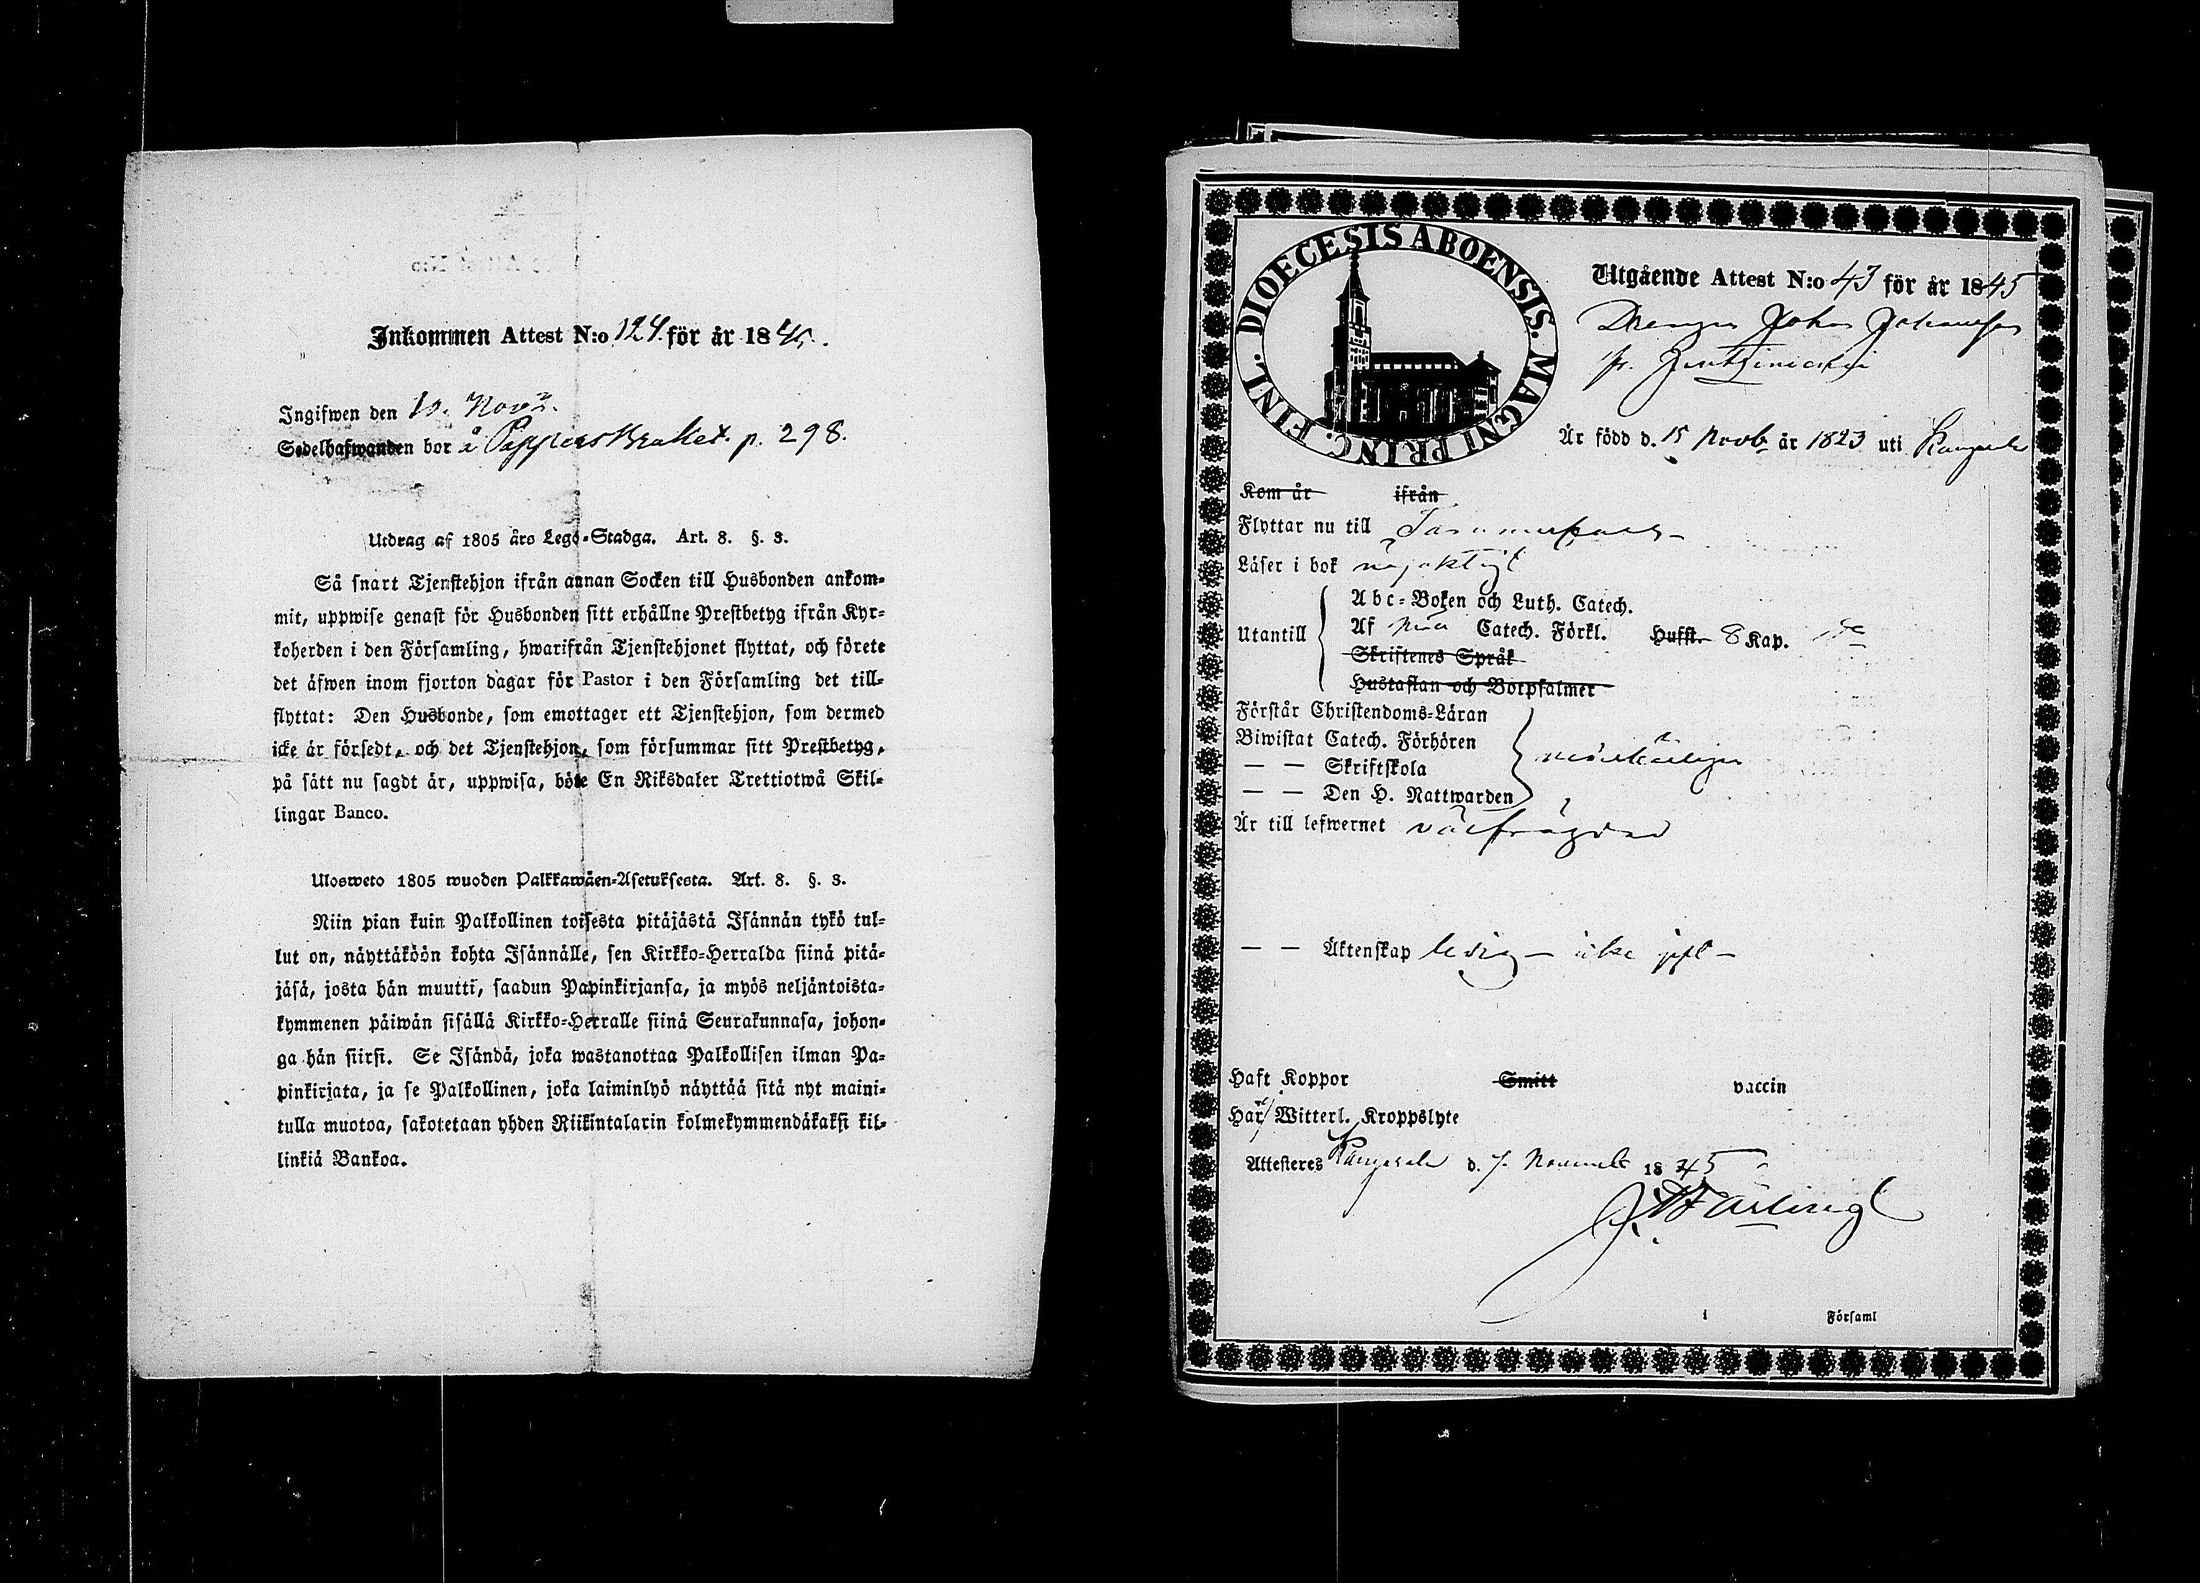 Inkommen Attest N:o 124. för år 1845.
Ingifwen den 10. Nov.
Sedelhafwanden bor å Pappersbruket. p. 298.
Utdrag af 1805 års Lego-Stadga. Art. 8. §. 3.
Så snart Tjenstehjon ifrån annan Socken till Husbonden ankom-
mit, uppwise genast för Husbonden sitt erhållne Prestbetyg ifrån Kyr-
koherden i den Församling, hwarifrån Tjenstehjonet flyttat, och förete
det äfwen inom fjorton dagar för Pastor i den Församling det till-
flyttat: Den Husbonde, som emottager ett Tjenstehjon, som dermed
icke är försedt, och det Tjenstehjon, som försummar sitt Prestbetyg,
på sätt nu sagdt är, uppwisa, böte En Riksdaler Trettiotwå Skil-
lingar Banco.
Ulosweto 1805 wuoden Palkkawäen-Asetuksesta. Art. 8. §. 3.
Niin pian kuin Palkollinen toisesta pitäjästä Isännän tykö tul-
lut on, näyttäköön kohta Isännälle, sen Kirkko-Herralda siinä pitä-
jäsä, josta hän muutti, saadun Papinkirjansa, ja myös neljäntoista-
kymmenen päiwän sisällä Kirkko-Herralle siinä Seurakunnasa, johon-
ga hän siirsi. Se Isändä, joka wastanottaa Palkollisen ilman Pa-
pinkirjata, ja se Palkollinen, joka laiminlyö näyttää sitä nyt maini-
tulla muotoa, sakotetaan yhden Riikintalarin kolmekymmendäkaksi kil-
linkiä Bankoa.
DIOECESIS ABOENSIS. MAGNI PRINC. FINL.
Utgående Attest N:o 43 för år 1845
Drengen Johan Johansson
fr.
Är född d. 15 Novb år 1823 uti Kangasala
Kom år ifrån
Flyttar nu till Tammerfors
Läser i bok nöjaktigt
Abc-Boken och Luth. Catech.
Utantill Af Catech. Förkl. Hufst. 8 Kap.
Skriftenes Språk
Hustaflan och Botpsalmer
Förstår Christendoms-Läran
Biwistat Catech. Förhören
— — Skriftskola
— — Den H. Nattwarden
Är till lefwernet välfrägdad
— — Äktenskap ledig — icke
Haft Koppor Smitt vaccin
Har Witterl. Kroppslyte
Attesteres Kangasala d. 7. November 1845
i Församl